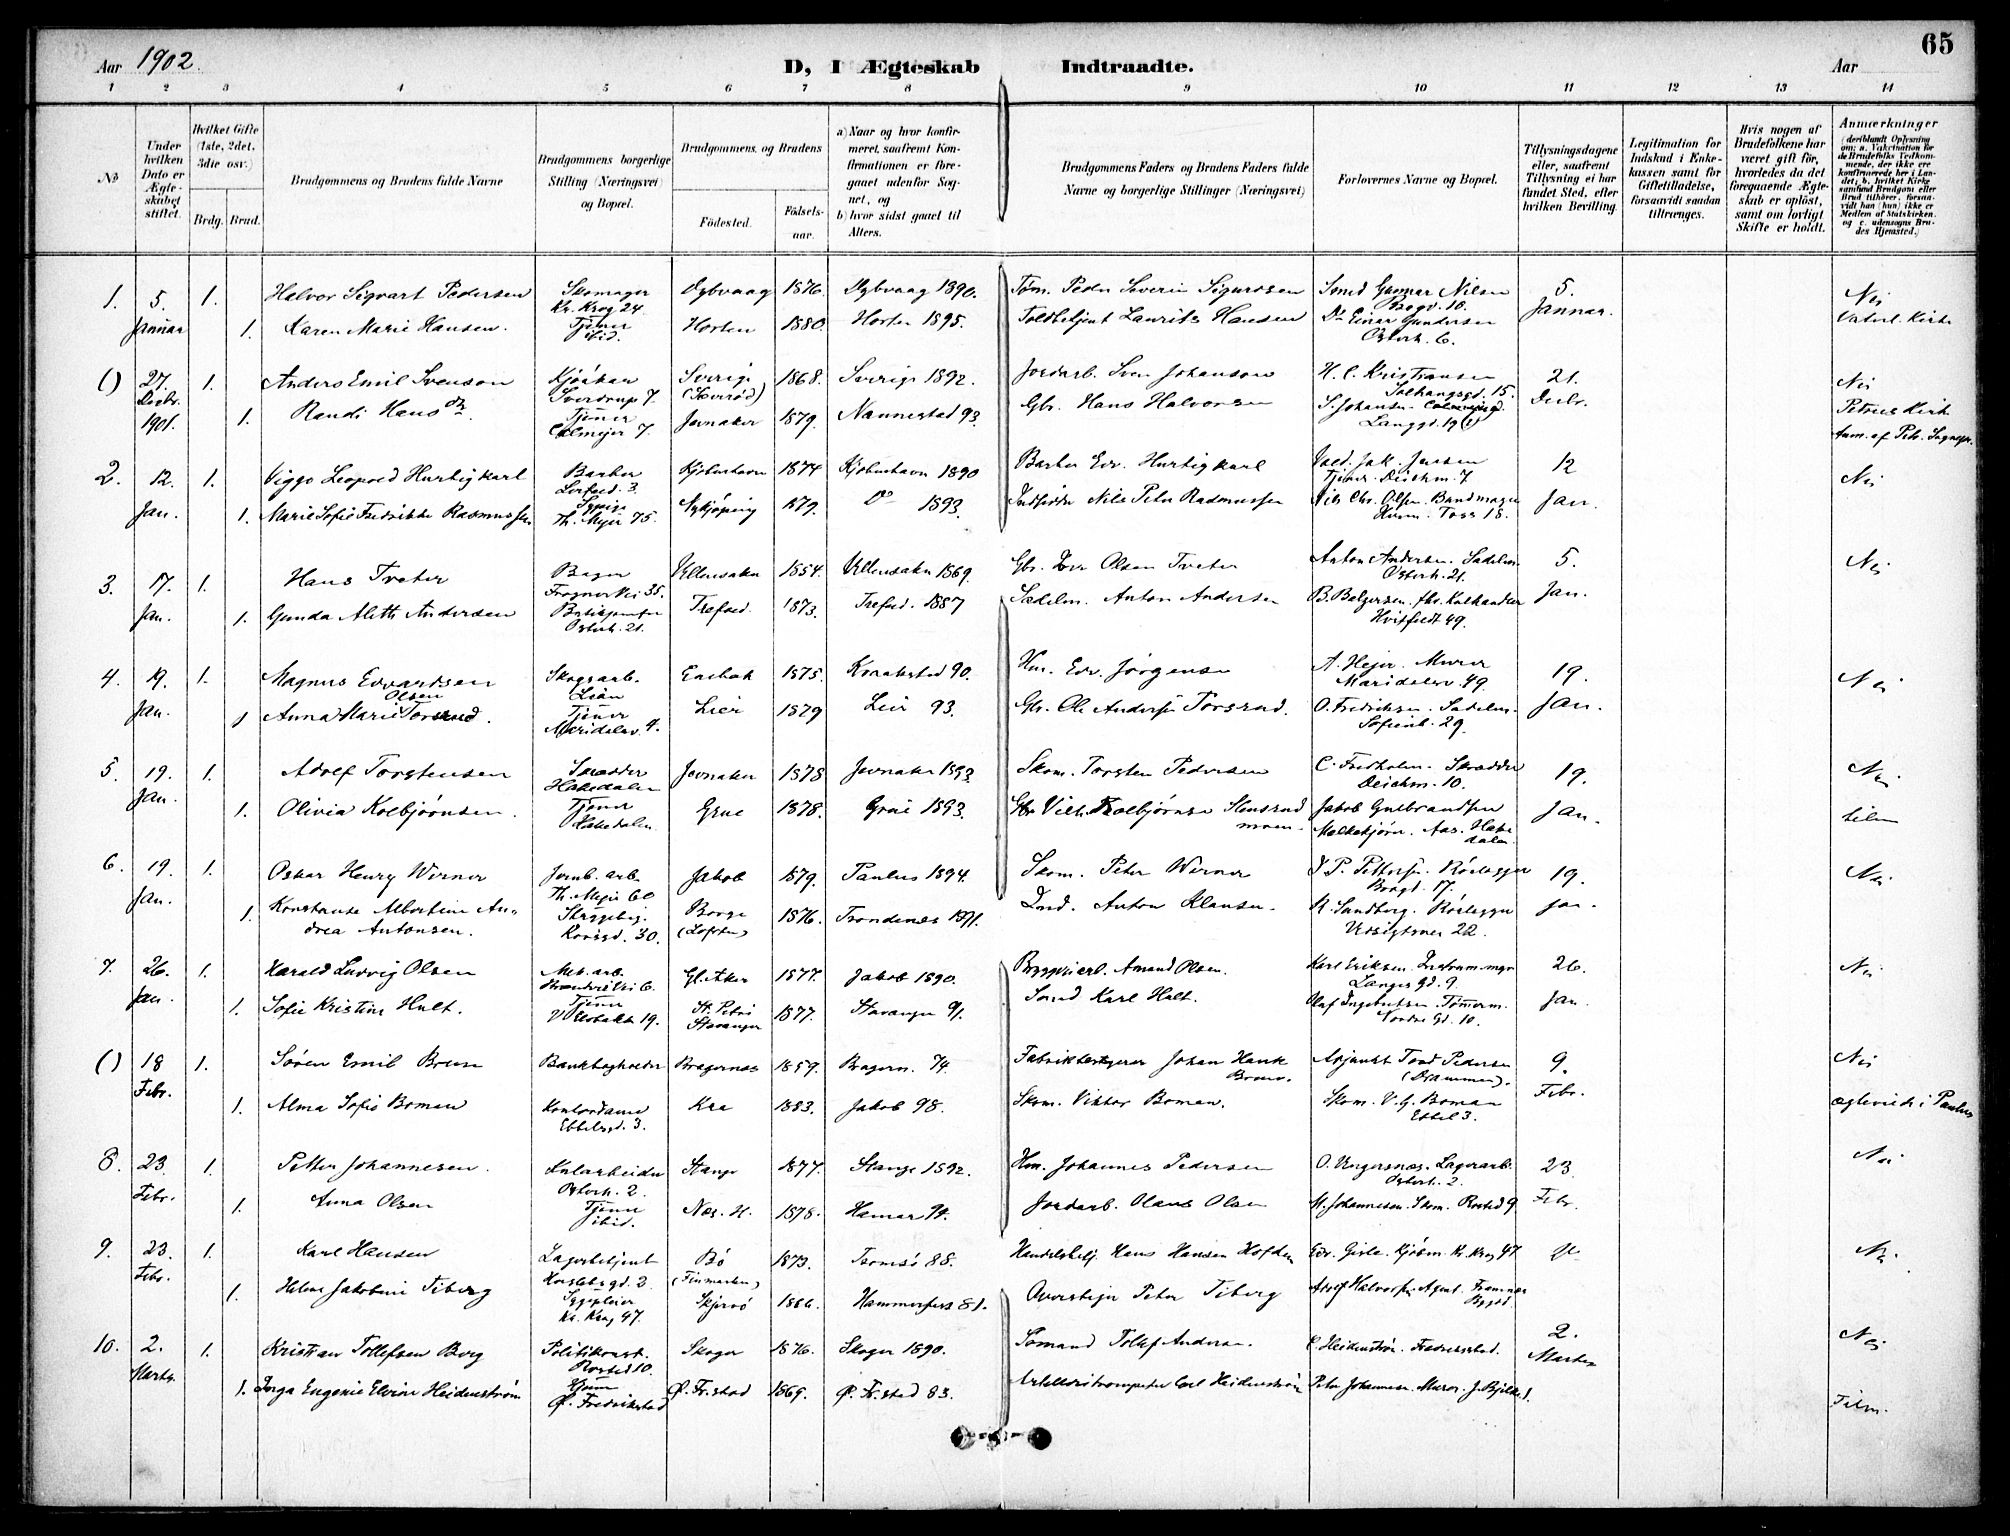 Aar 1902.
D, I Ægteskab Indtraadte.
65
Aar
1 2 3 4 5 6 7 8 9 10 11 12 13 14
No
Under hvilken Dato er Ægteskabet stiftet.
Hvilket Gifte (1ste, 2det, 3die osv.)
Brdg. Brud.
Brudgommens og Brudens fulde Navne
Brudgommens borgerlige Stilling (Næringsvei) og Bopæl.
Brudgommens og Brudens
Födested.
Födsels-aar.
a) Naar og hvor konfirmeret, saafremt Konfirmationen er foregaaet udenfor Sognet, og
b) hvor sidst gaaet til Alters.
Brudgommens Faders og Brudens Faders fulde Navne og borgerlige Stillinger (Næringsvei)
Forlovernes Navne og Bopæl.
Tillysningsdagene eller, saafremt Tillysning ei har fundet Sted, efter hvilken Bevilling.
Legitimation for Indskud i Enkekassen samt for Giftetilladelse, forsaavidt saadan tiltrænges.
Hvis nogen af Brudefolkene har været gift för, hvorledes da det foregaaende Ægteskab er oplöst, samt om lovligt Skifte er holdt.
Anmærkninger
(deriblandt Oplysning om: a. Vakcination for de Brudefolks Vedkommende, der ikke ere konfirmerede her i Landet; b. hvilket Kirkesamfund Brudgom eller Brud tilhörer, forsaavidt han (hun) ikke er Medlem af Statskirken, og c. udensogns Brudes Hjemsted.)
1. 5. Januar 1. Halvor Sigvart Pedersen Skomager Kr. Krog 24 Dybvaag 1876. Dybvaag 1890. Tøm. Peder Severin Sigurdsen Smed Gunnar Nilsen Bogd. 10. 5. Januar. Nei
1. Karen Marie Hansen. Tjener ibid. Horten 1880. Horten 1895. Toldbetjent Laurits Hansen Do Einar Gundersen Osterh. 6. Vaterl. Kirke
() 27. Decbr. 1901. 1. Anders Emil Svenson Sverdrup 7. Sverige 1868. Sverige 1892. Jordarb. Sven Johanson H. C. Kristiansen 15. 21. Decbr. Nei
1. Randi Hansdr. Tjener Calmejer 7. Jevnaker 1879. Nannestad 93. Gbr. Hans Halvorsen S. Johansen Langgd. 19 Petrus Kirk
Anm. af Petr. Sognepr.
2. 12. Jan. 1. Viggo Leopold Hurtigkarl Barber 3. Kjøbenhavn 1874 Kjøbenhavn 1890 Barber Edv. Hurtigkarl Vald. Jak. Jensen Tjener. Deichm. 7 12 Jan. Nei
1. Marie Sofie Fredrikke Rasmussen Sypige Th. Mejer 75. Nykjöping 1879. Do 1893. Nils Peter Rasmussen Nils Chr. Olsen. Bundmager 18.
3. 17. Jan. 1. Hans Tveter Bager Frognervei 35. Ullensaker 1854. Ullensaker 1869. Gbr. Olsen Tveter Anton Andersen. Sadelm. Osterh. 21. 5. Jan. Nei
1. Gunda Aleth Andersen Osterh. 21. Trefold. 1873. Trefold. 1887 Sadelm. Anton Andersen Hvitfeldt 49.
4. 19. Jan. 1. Magnus Edvardsen Skogsarb. Enebak 1875. Kraakstad 90. Hm. Edv. Jörgensen A. Hejer. Murer Maridalsv. 49. 19. Jan. Nei
1 Anna Marie Olsen Torsrud. Tjener Maridalsv. 4. Lier 1879 Lier 93. Gbr. Ole Andersen Torsrud. O. Fredriksen. Sadelm. Sofienb. 29.
5. 19. Jan. 1. Adolf Torstensen Skrædder Hakedalen Jevnaker 1878 Jevnaker 1893 Skom. Torsten Pedersen C. Fredholm. Skrædder Deichm. 10. 19. Jan. Nei
1. Olivia Kolbjörnsen. Tjener Hakedalen. Grue 1878. Grue 1893. Vilh. Kolbjörnsen Jakob Gulbrandsen Aas. Hakedalen
6. 19. Jan. 1. Oskar Henry Werner Jernb. arb. Th. Mejer 60 Jakob 1879. Paulus 1894. Skom. Peter Werner J. P. Pettersen. Rörlægger 17. 19. Jan. Nei
1. Konstanse Albertine Andrea Antonsen. Korsgd. 30. Borge (Lofoten) 1876. Trondenes 1891. Ind. Anton Klausen. M. Sandberg. Rörlægger 22.
7. 26. Jan. 1. Harald Ludvig Olsen Mek. arb. 6. Gl. Aker 1877. Jakob 1890. Bryggeriarb. Amand Olsen. Karl Eriksen. Langes gd. 9. 26. Jan. Nei
1. Sofie Kristine Hult. Tjener 19. St. Petri Stavanger 1877. Stavanger 91. Smed Karl Hult. Olaf Ingebretsen. Tömerm. Nordre Gd. 10.
() 18 Febr. 1. Sören Emil Bruun Bankbogholder Bragernes 1859. Bragern. 74. Fabrikbestyrer Johan Adjunkt Tord Pedersen (Drammen). 9. Febr. Nei
1. Alma Sofie Boman Kontordame Ebbelsgd. 3. Kra 1883. Jakob 98. Skom. Viktor Boman. Skom. V. G. Boman Ebbel 3. ægteviede i Paulus
8. 23. Febr. 1. Petter Johannesen. Osterh. 2. Stange 1877. Stange 1892. Hm. Johannes Pedersen O. Lagerarb. Osterh. 2. 23 Febr. Nei
1. Anna Olsen Tjener ibid. Nes. H. 1878. Hamar 94. Jordarb. Olaus Olsen M. Johannesen. Skom. Rosted 9
9. 23. Febr. 1. Karl Hansen Lagerbetjent 2 Bö (Finmarken) 1873. Tromsö 88. Handelsbetj. Hans Hansen Edv. Gisle. Kjöbm. Kr. Krog 47. Nei
1. Helene Jakobine Fiberg Sygepleier Kr. Krog 47. Skjervö 1866. Hammerfest 81. Peter Fiberg Adolf Halvorsen. Agent.
10. 2. Marts. 1. Kristian Tollefsen Berg Politikonst. Rosted 10. Skoger 1876. Skoger 1890. Sömand Tollef Andersen. C. Heidenström. Fredriksstad. 2. Marts Nei
1. Inga Eugenie Elvine Heidenström Hjem Ø. Fredrikstad Ø. Fr.stad 1869. Ø. Fr.stad 83. Carl Heidenström Peter Johannesen. Murer.